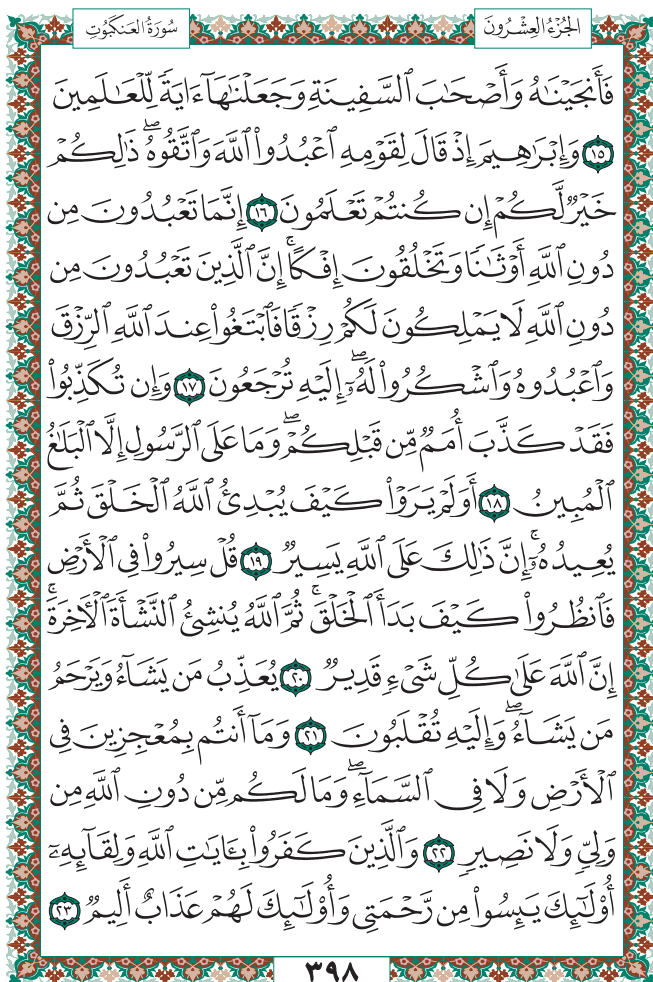 الجُزْءُ العِشْرُونَ
سُورَةُ العَنكَبُوتِ
فَأَنجَيْنَٰهُ وَأَصْحَٰبَ ٱلسَّفِينَةِ وَجَعَلْنَٰهَآ ءَايَةً لِّلْعَٰلَمِينَ
١٥ وَإِبْرَٰهِيمَ إِذْ قَالَ لِقَوْمِهِ ٱعْبُدُوا۟ ٱللَّهَ وَٱتَّقُوهُ ۖ ذَٰلِكُمْ
خَيْرٌ لَّكُمْ إِن كُنتُمْ تَعْلَمُونَ ١٦ إِنَّمَا تَعْبُدُونَ مِن
دُونِ ٱللَّهِ أَوْثَٰنًا وَتَخْلُقُونَ إِفْكًا ۚ إِنَّ ٱلَّذِينَ تَعْبُدُونَ مِن
دُونِ ٱللَّهِ لَا يَمْلِكُونَ لَكُمْ رِزْقًا فَٱبْتَغُوا۟ عِندَ ٱللَّهِ ٱلرِّزْقَ
وَٱعْبُدُوهُ وَٱشْكُرُوا۟ لَهُۥٓ ۖ إِلَيْهِ تُرْجَعُونَ ١٧ وَإِن تُكَذِّبُوا۟
فَقَدْ كَذَّبَ أُمَمٌ مِّن قَبْلِكُمْ ۖ وَمَا عَلَى ٱلرَّسُولِ إِلَّا ٱلْبَلَٰغُ
ٱلْمُبِينُ ١٨ أَوَلَمْ يَرَوْا۟ كَيْفَ يُبْدِئُ ٱللَّهُ ٱلْخَلْقَ ثُمَّ
يُعِيدُهُۥٓ ۚ إِنَّ ذَٰلِكَ عَلَى ٱللَّهِ يَسِيرٌ ١٩ قُلْ سِيرُوا۟ فِى ٱلْأَرْضِ
فَٱنظُرُوا۟ كَيْفَ بَدَأَ ٱلْخَلْقَ ۚ ثُمَّ ٱللَّهُ يُنشِئُ ٱلنَّشْأَةَ ٱلْءَاخِرَةَ ۚ
إِنَّ ٱللَّهَ عَلَىٰ كُلِّ شَىْءٍ قَدِيرٌ ٢٠ يُعَذِّبُ مَن يَشَآءُ وَيَرْحَمُ
مَن يَشَآءُ ۖ وَإِلَيْهِ تُقْلَبُونَ ٢١ وَمَآ أَنتُم بِمُعْجِزِينَ فِى
ٱلْأَرْضِ وَلَا فِى ٱلسَّمَآءِ ۖ وَمَا لَكُم مِّن دُونِ ٱللَّهِ مِن
وَلِىٍّ وَلَا نَصِيرٍ ٢٢ وَٱلَّذِينَ كَفَرُوا۟ بِـَٔايَٰتِ ٱللَّهِ وَلِقَآئِهِۦٓ
أُو۟لَٰٓئِكَ يَئِسُوا۟ مِن رَّحْمَتِى وَأُو۟لَٰٓئِكَ لَهُمْ عَذَابٌ أَلِيمٌ ٢٣
٣٩٨